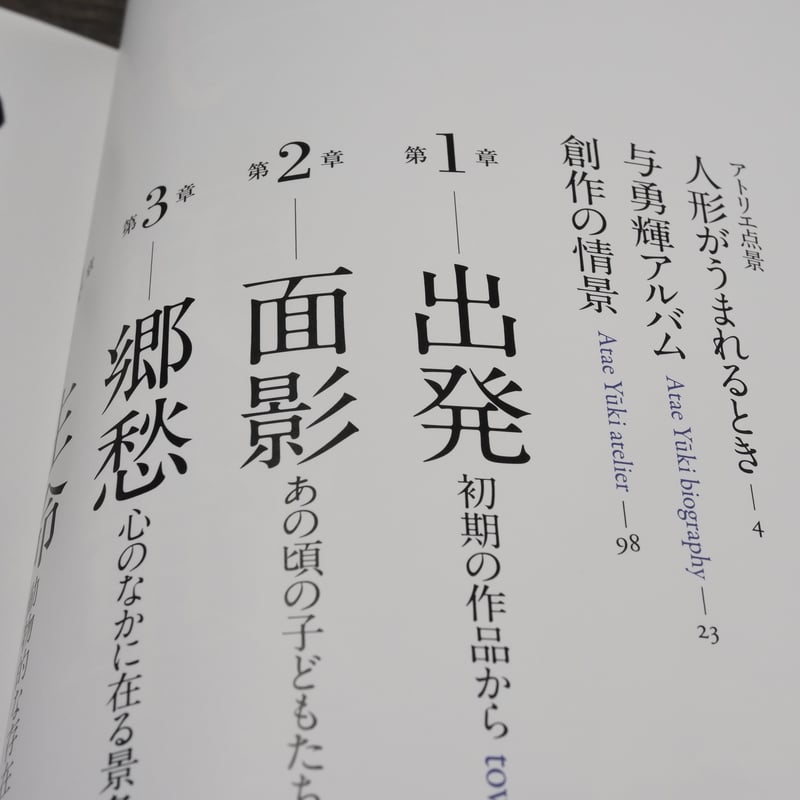 アトリエ点景
人形がうまれるとき — 4
与勇輝アルバム Atae Yūki biography — 23
創作の情景 Atae Yūki atelier — 98
第1章 — 出発 初期の作品から
第2章 — 面影 あの頃の子どもたち
第3章 — 郷愁 心のなかに在る景